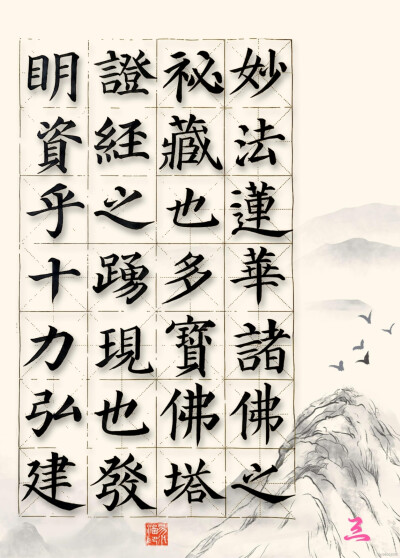 妙法蓮華諸佛之
祕藏也多寶佛塔
證經之踴現也發
明資乎十力弘建
三